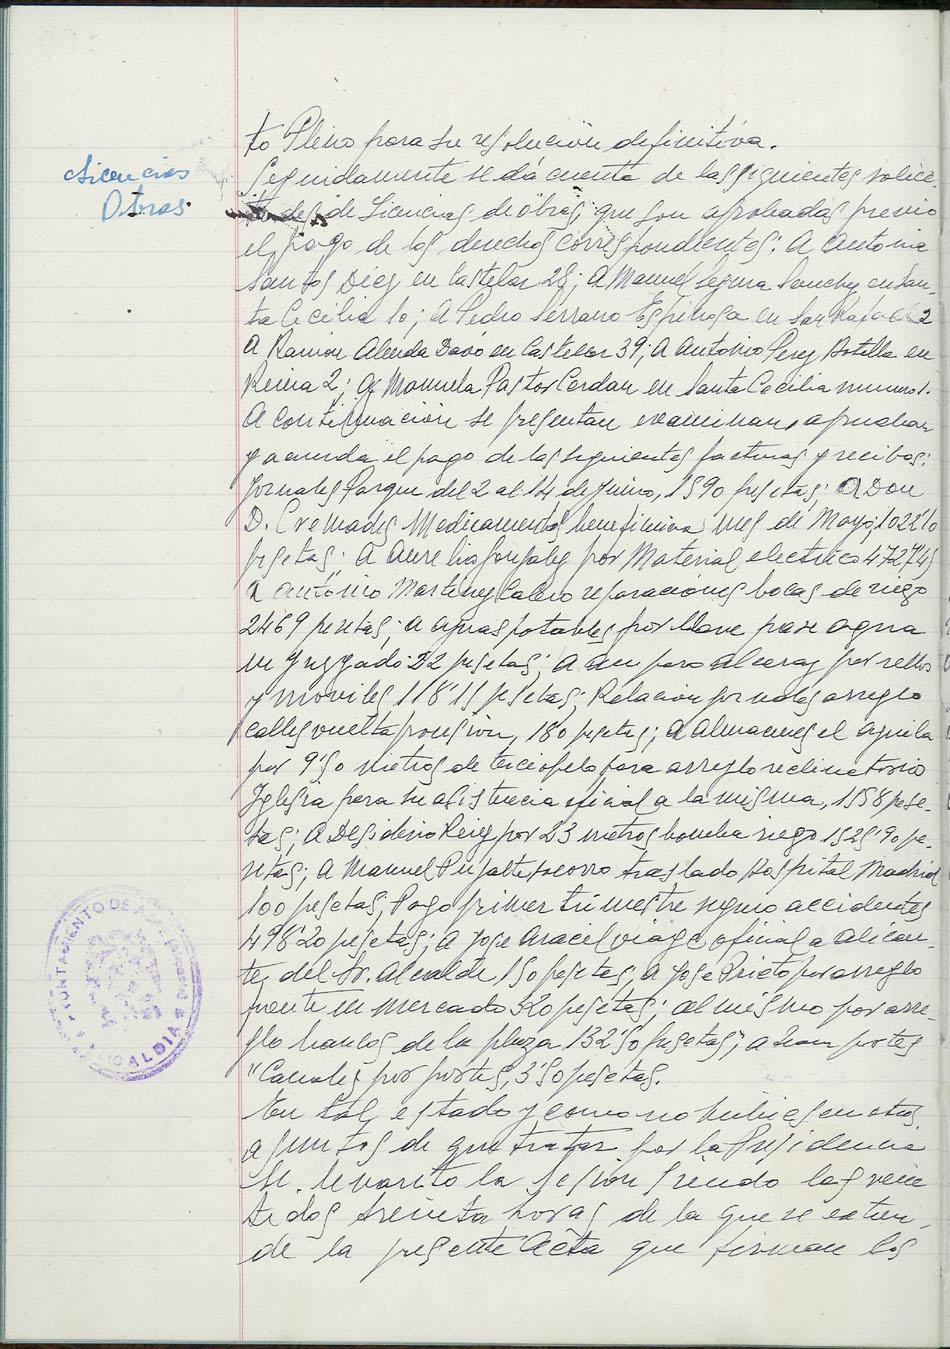 Licencias
Obras
to Pleno para su resolución definitiva.
Seguidamente se dá cuenta de las siguientes solici-
tudes de Licencias de obras, que son aprobadas previo
el pago de los derechos correspondientes: A Antonia
Santos Diez en Castelar 28; A Manuel Segura Sanchez en San-
ta Cecilia 10; A Pedro Serrano Espinosa en San Rafael 2
A Ramon Almela Davó en Castelar 39; A Antonio Perez Botella en
Reina 2; A Manuela Pastor Cerdan en Santa Cecilia numero 1.
A continuación se presentan examinan, aprueban
y acuerda el pago de las siguientes facturas y recibos:
Jornales Parque del 2 al 14 de Junio, 1590 pesetas; A Don
D. Cremades Medicamentos beneficiencia mes de Mayo, 1022'10
pesetas; A Aurelio Gonzalez por Material electrico 4727'45
A Antonio Martinez Calero reparaciones bocas de riego
2469 pesetas; a aguas potables por llave pase agua
en Juzgado 22 pesetas; A Amparo Alcaraz por sellos
y moviles 118'15 pesetas; Relacion jornales arreglo
calles vuelta procesion, 180 pesetas; A Almacenes el Aguila
por 9'50 metros de terciopelo para arreglo reclinatorio
Iglesia para su asistencia oficial a la misma, 1558 pese-
tas; A Desiderio Reig por 23 metros bomba riego 1525'90 pe-
setas; A Manuel Pujalte socorro traslado Hospital Madrid
100 pesetas; Pago primer trimestre seguro accidentes
498'20 pesetas; A Jose Aracil viage oficial a Alican-
te, del Sr. Alcalde 150 pesetas; A Jose Prieto por arreglo
fuente en mercado 320 pesetas; al mismo por arre-
glo bancos de la plaza 132'50 pesetas; a Transportes
"Canales por portes, 3'50 pesetas.
En tal estado y como no hubiesen otros
asuntos de que tratar por la Presidencia
se levantó la sesion siendo las vein
tidos treinta horas de la que se extien-
de la presente Acta que firman los
AYUNTAMIENTO DE
ALCALDIA